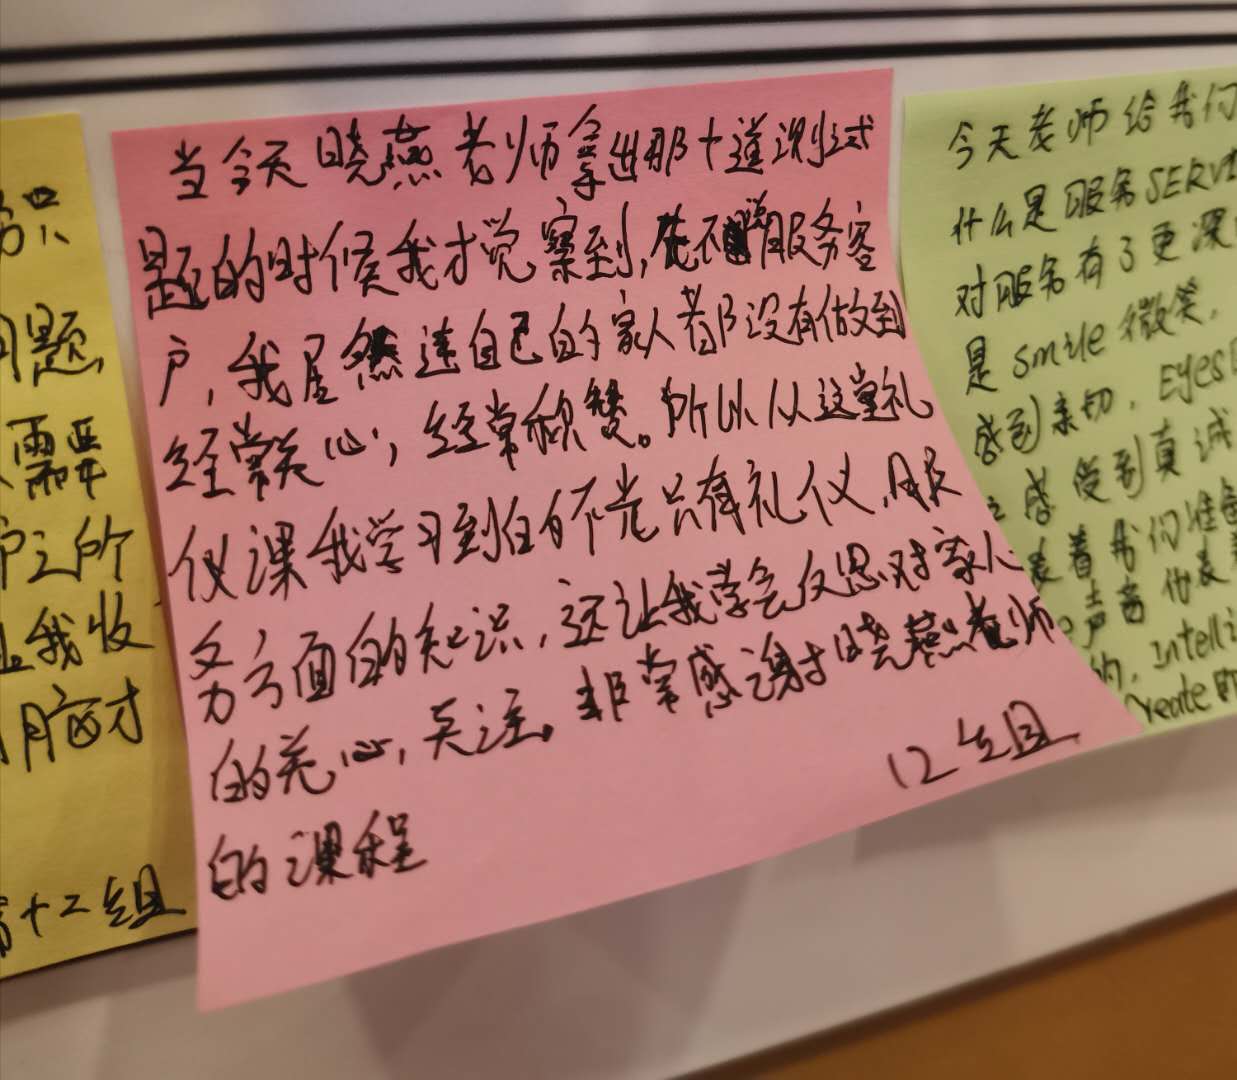 识
问题,
需要
户之所
让我收
月齿才
第十二组
当今天晓燕老师拿出那十道测试
题的时候我才觉察到,先不说服务客
户,我居然连自己的家人都没有做到
经常关心,经常称赞。所以从这堂礼
仪课我学习到的不光只有礼仪,服
务方面的知识,还让我学会反思对家人
的关心,关注。非常感谢晓燕老师
的课程
12组
今天老师给我们
什么是服务SERVI
对服务有了更深
是smile微笑,
感到亲切,Eyes
感受到真诚
表着我们准备
声音代表着
的,Intelli
Create即